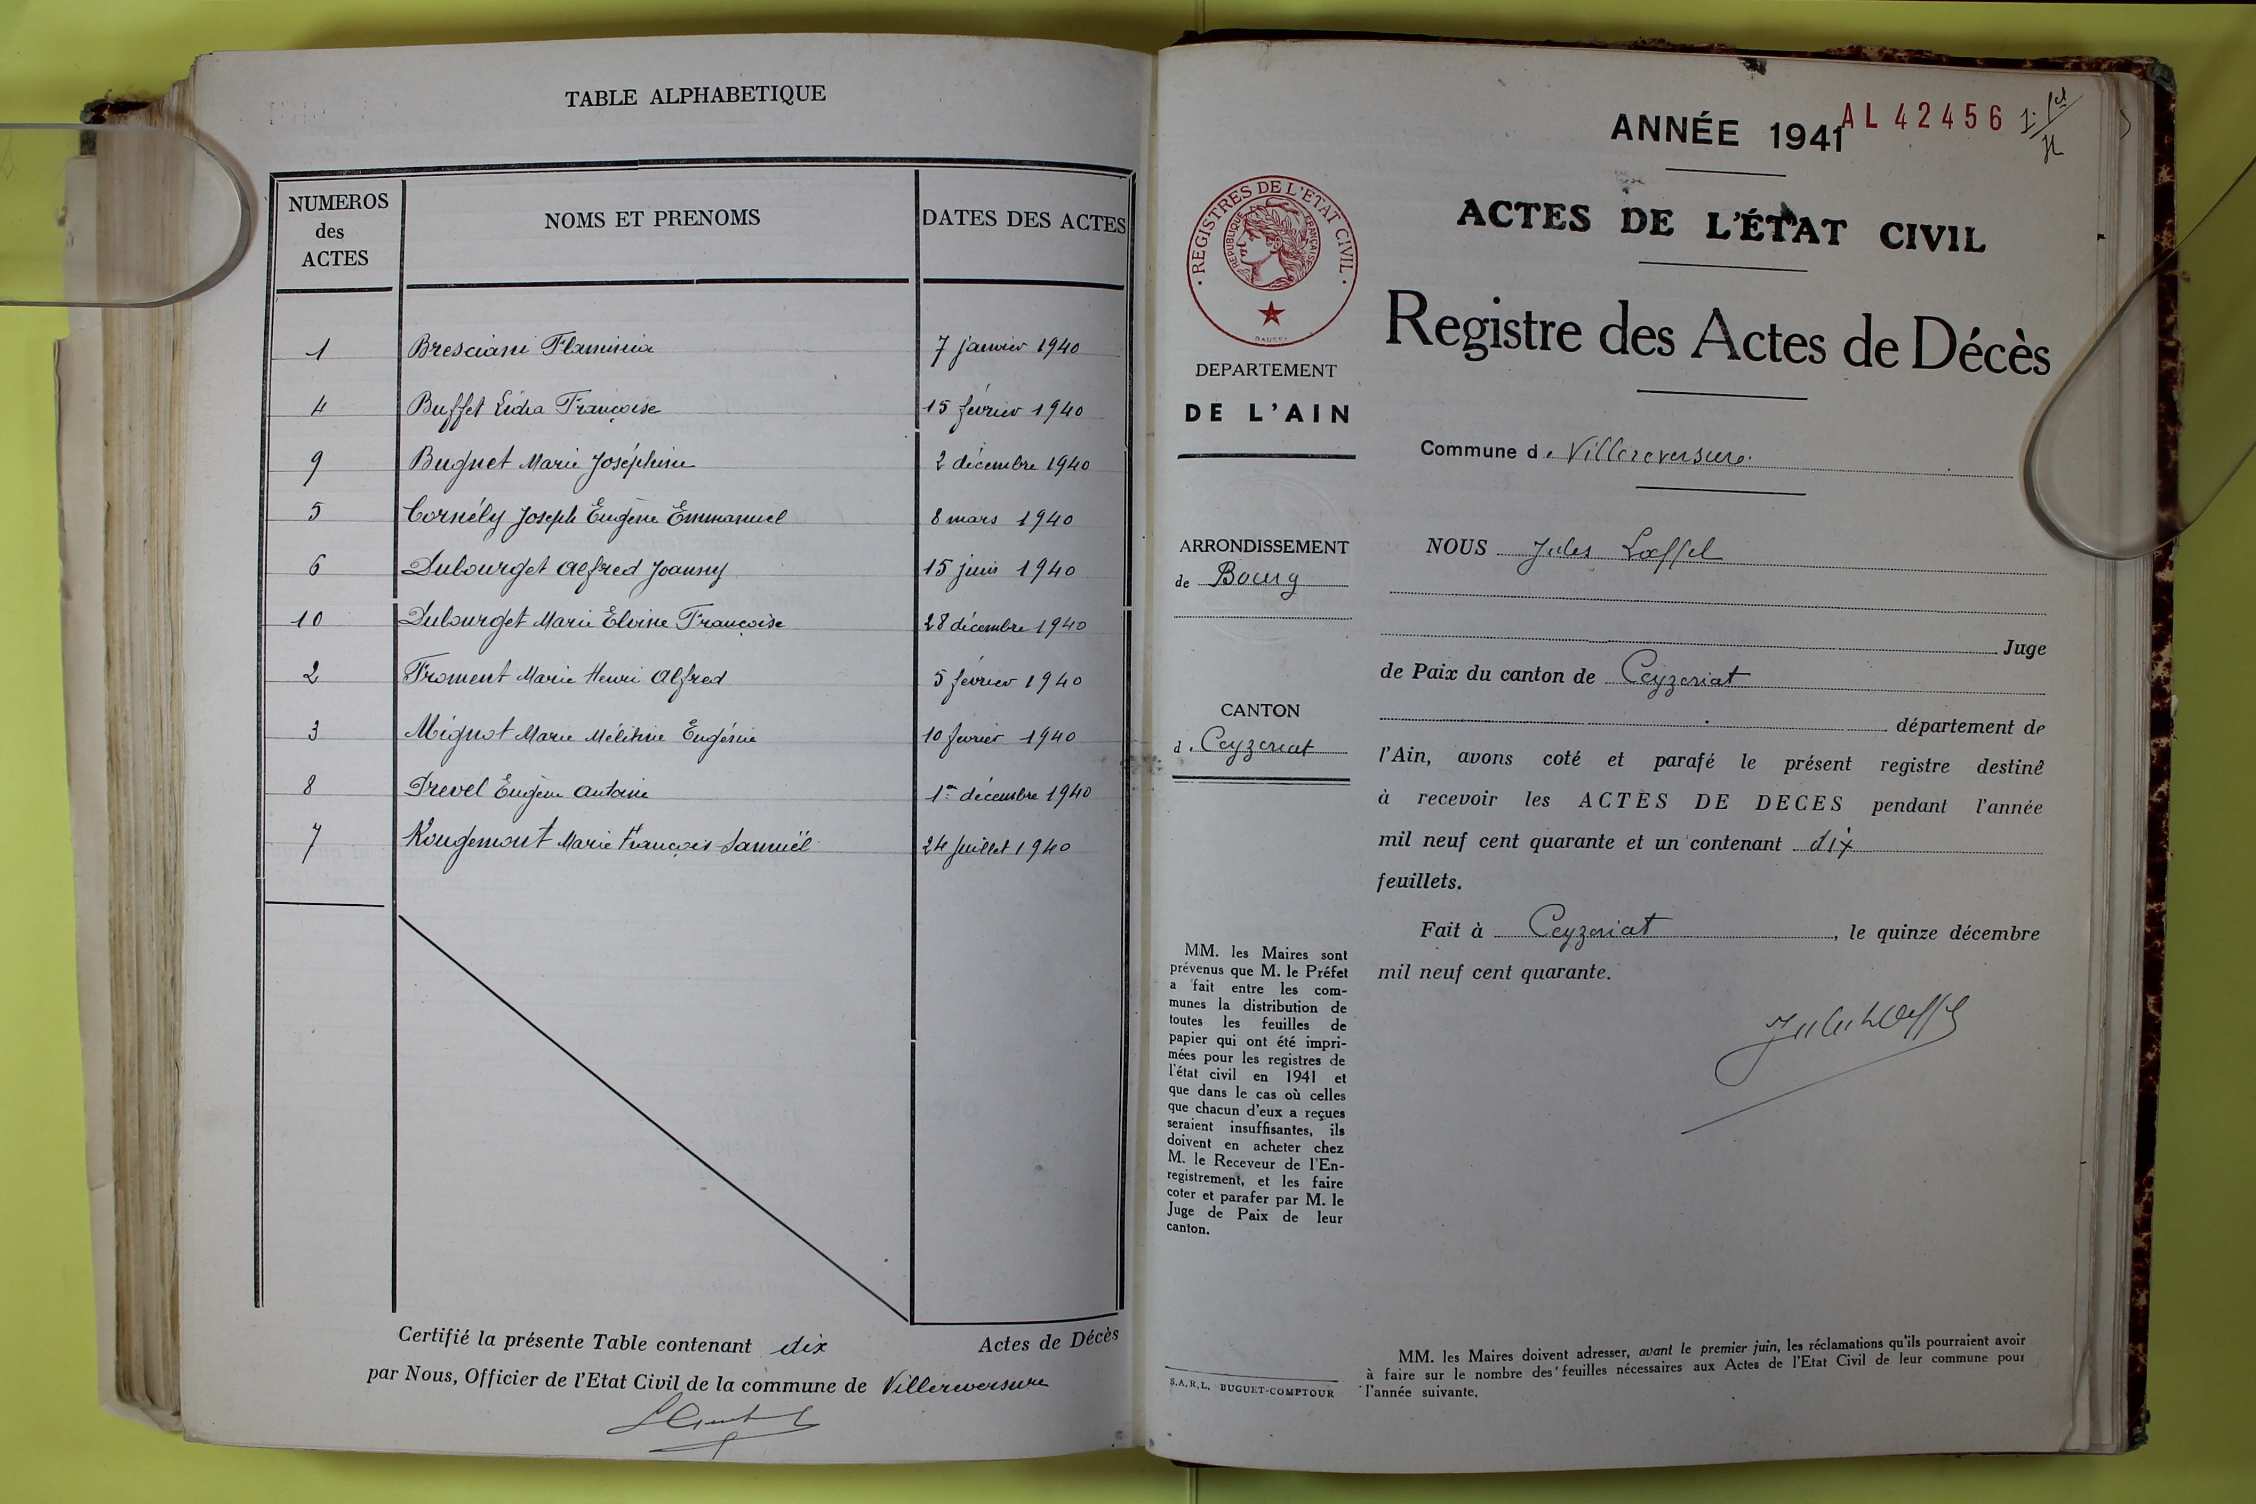 TABLE ALPHABETIQUE
NUMEROS des ACTES
NOMS ET PRENOMS
DATES DES ACTES
1 Bresciani Flaminia 7 janvier 1940
4 Buffet Lidia Françoise 15 février 1940
9 Buguet Marie Joséphine 2 décembre 1940
5 Cornély Joseph Eugène Emmanuel 8 mars 1940
6 Dubourget Alfred Joanny 15 juin 1940
10 Dubourget Marie Elvine Françoise 28 décembre 1940
2 Froment Marie Henri Alfred 5 février 1940
3 Mignot Marie Mélitine Eugénie 10 février 1940
8 Prevel Eugène Antoine 1er décembre 1940
7 Rougemont Marie François Samuël 24 juillet 1940
Certifié la présente Table contenant dix Actes de Décès
par Nous, Officier de l'Etat Civil de la commune de Villereversure
ANNÉE 1941
AL 42456
ACTES DE L'ÉTAT CIVIL
Registre des Actes de Décès
REGISTRES DE L'ETAT CIVIL
REPUBLIQUE FRANÇAISE
DEPARTEMENT
DE L'AIN
ARRONDISSEMENT
de Bourg
CANTON
d e Ceyzeriat
MM. les Maires sont
prévenus que M. le Préfet
a fait entre les com-
munes la distribution de
toutes les feuilles de
papier qui ont été impri-
mées pour les registres de
l'état civil en 1941 et
que dans le cas où celles
que chacun d'eux a reçues
seraient insuffisantes, ils
doivent en acheter chez
M. le Receveur de l'En-
registrement, et les faire
coter et parafer par M. le
Juge de Paix de leur
canton.
S.A.R.L. BUGUET-COMPTOUR
Commune d e Villereversure
NOUS Jules Lœffel
Juge
de Paix du canton de Ceyzeriat
département de
l'Ain, avons coté et parafé le présent registre destiné
à recevoir les ACTES DE DECES pendant l'année
mil neuf cent quarante et un contenant dix
feuillets.
Fait à Ceyzeriat, le quinze décembre
mil neuf cent quarante.
Jules Lœffel
MM. les Maires doivent adresser, avant le premier juin, les réclamations qu'ils pourraient avoir
à faire sur le nombre des feuilles nécessaires aux Actes de l'Etat Civil de leur commune pour
l'année suivante.